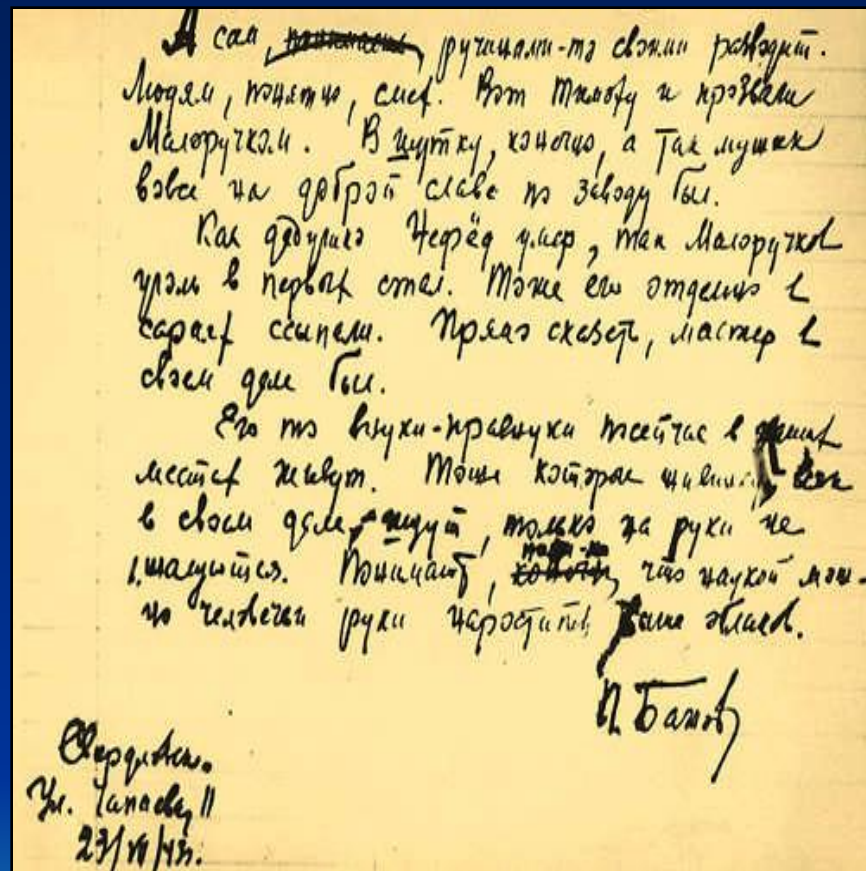 А сам, понимаешь, ручищами-то своими разводит.
Людям, понятно, смех. Вот Тимоху и прозвали
Малоручком. В шутку, конечно, а так мужик
вовсе на доброй славе по заводу был.
Как дедушко Нефёд умер, так Малоручков
уголь в первых стал. Тоже его отдельно в
сараях ссыпали. Прямо сказать, мастер в
своем деле был.
Его то внуки-правнуки посейчас в наших
местах живут. Тоже которые живинку всяк
в своем деле, ищут, только на руки не
жалуются. Понимают, поди-ко, что наукой мож-
но человечьи руки нарастить выше облаков.
П. Бажов
Свердловск.
Ул. Чапаева, 11
23/VII/43.